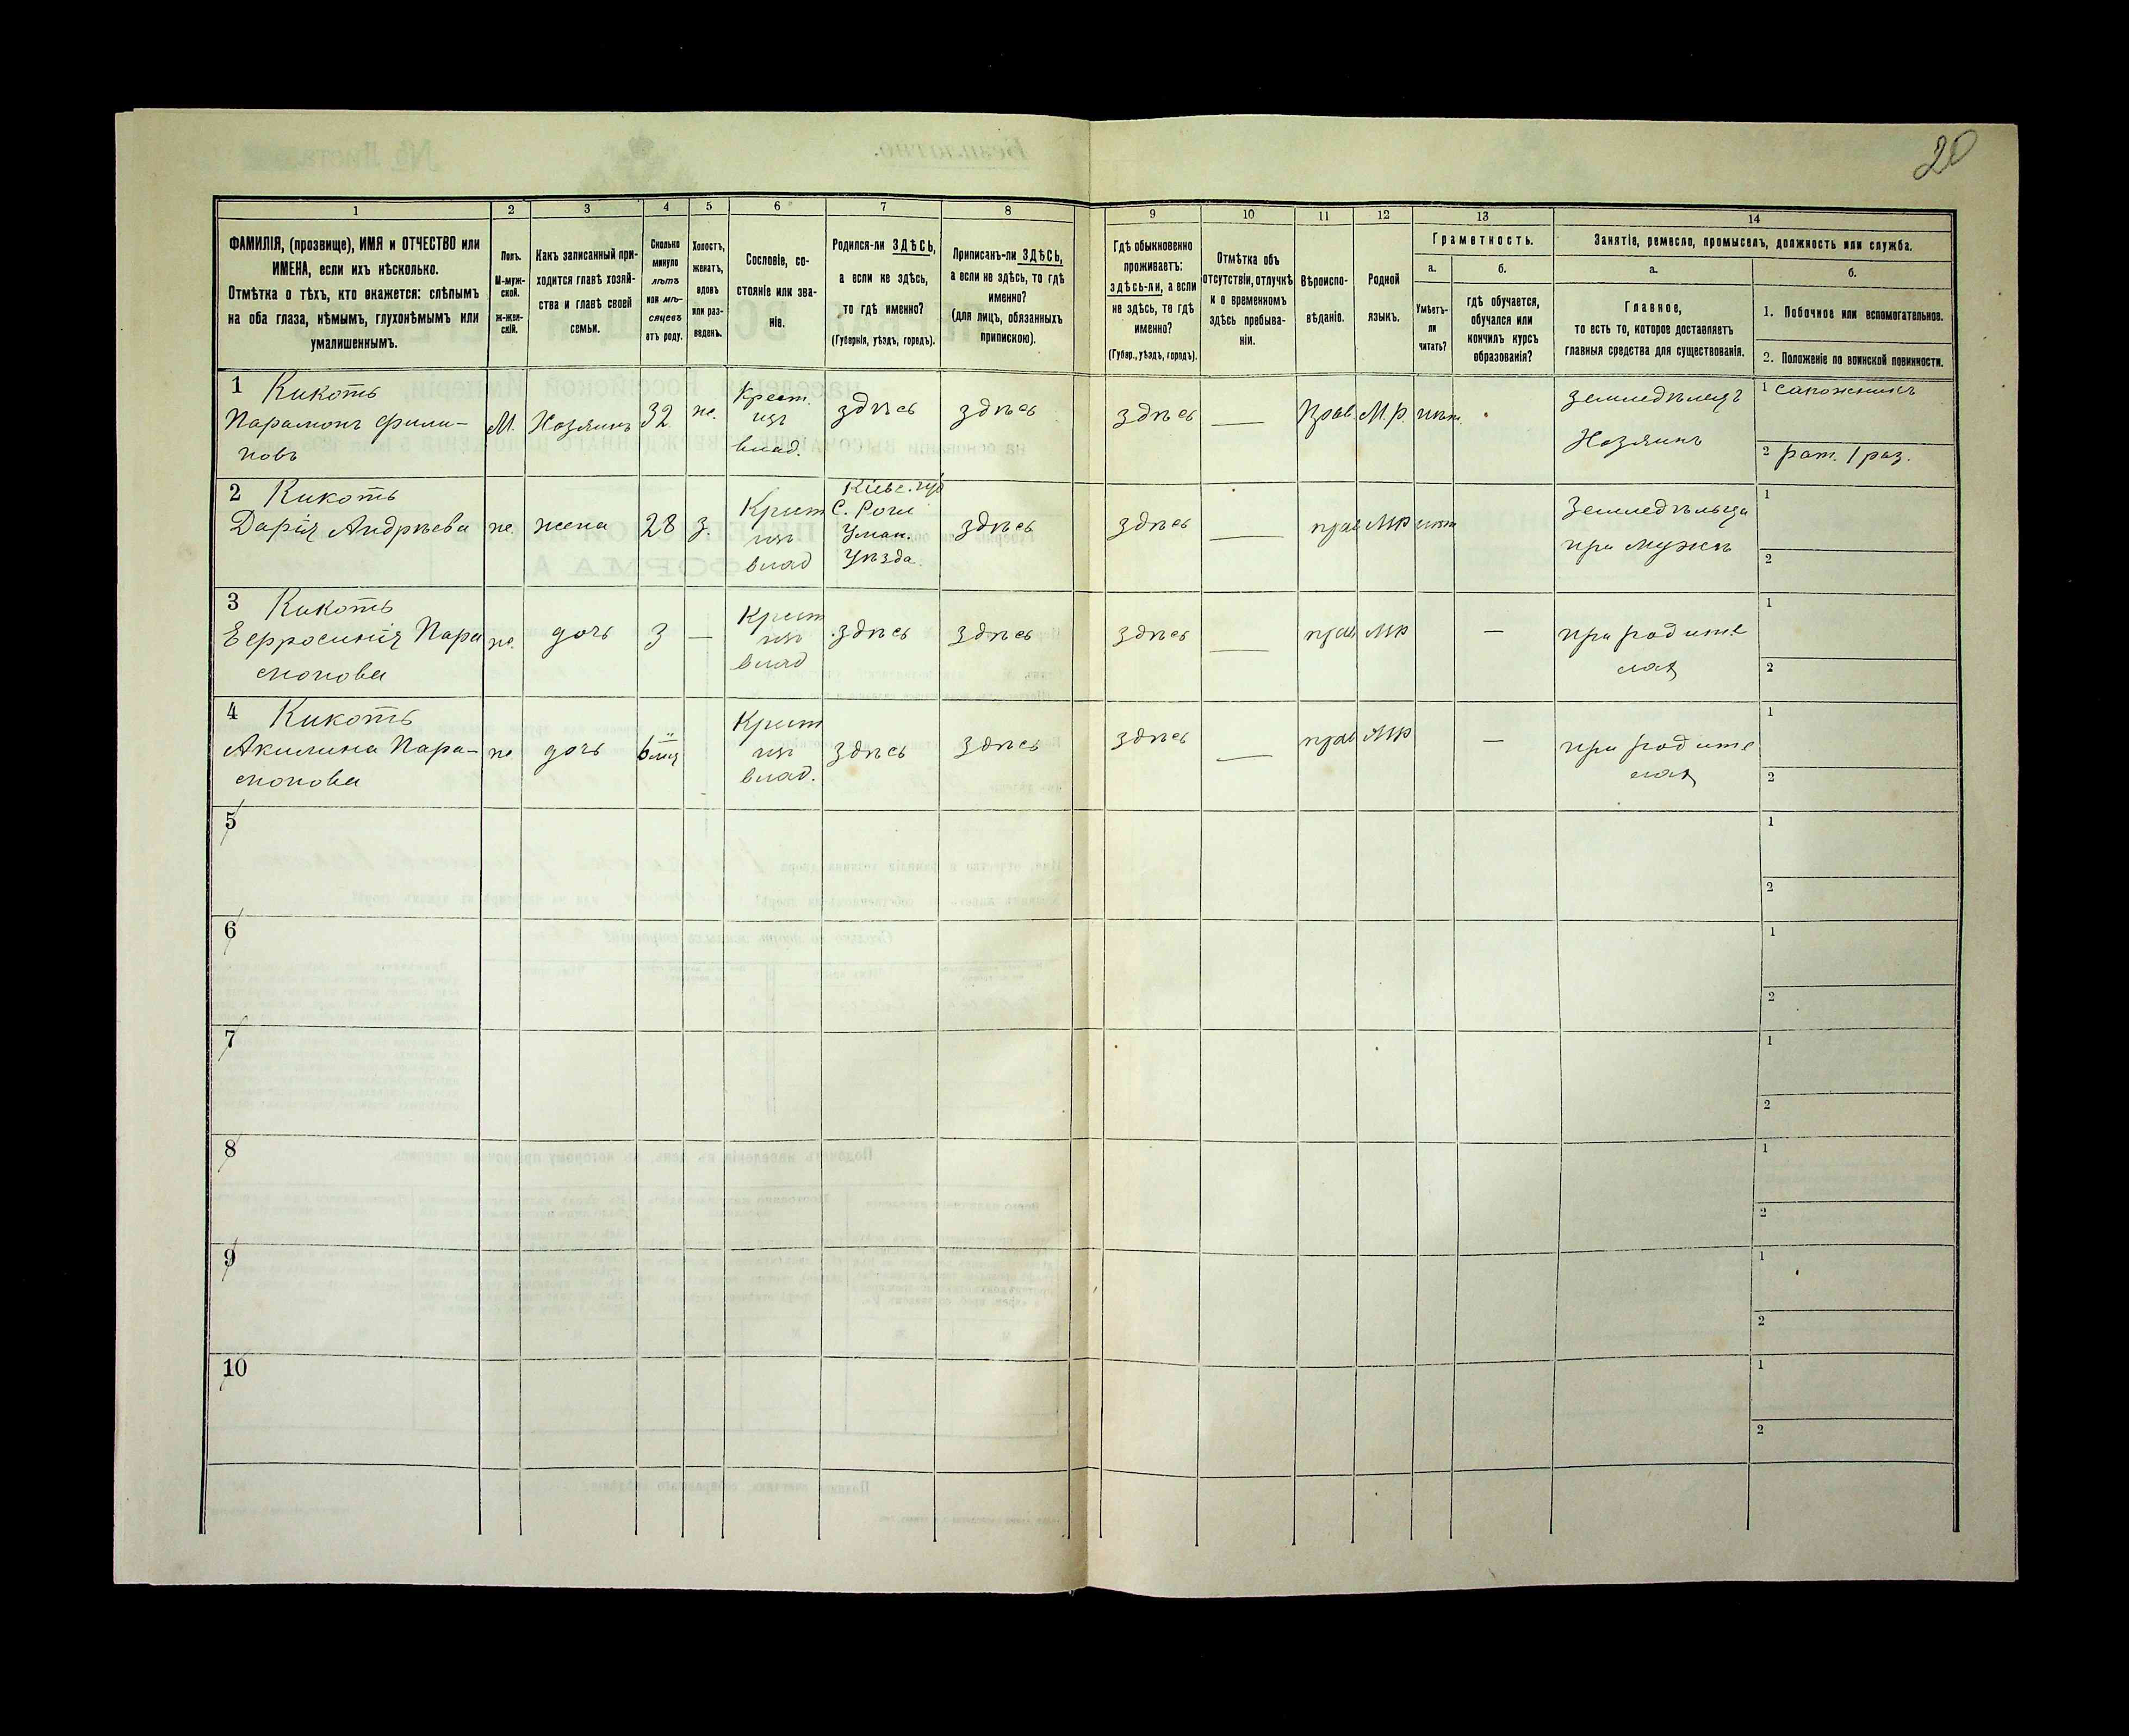 20
1 2 3 4 5 6 7 8 9 10 11 12 13 14
ФАМИЛІЯ, (прозвище), ИМЯ и ОТЧЕСТВО или
ИМЕНА, если ихъ нѣсколько.
Отмѣтка о тѣхъ, кто окажется: слѣпымъ
на оба глаза, нѣмымъ, глухонѣмымъ или
умалишеннымъ.
Полъ.
М-муж-
ской.
ж-жен-
скій.
Какъ записанный при-
ходится главѣ хозяй-
ства и главѣ своей
семьи.
Сколько
минуло
лѣтъ
или мѣ-
сяцевъ
отъ роду.
Холостъ,
женатъ,
вдовъ
или раз-
веденъ.
Сословіе, со-
стояніе или зва-
ніе.
Родился-ли ЗДѢСЬ,
а если не здѣсь,
то гдѣ именно?
(Губернія, уѣздъ, городъ).
Приписанъ-ли ЗДѢСЬ,
а если не здѣсь, то гдѣ
именно?
(для лицъ, обязанныхъ
припискою).
Гдѣ обыкновенно
проживаетъ:
здѣсь-ли, а если
не здѣсь, то гдѣ
именно?
(Губер., уѣздъ, городъ).
Отмѣтка объ
отсутствіи, отлучкѣ
и о временномъ
здѣсь пребыва-
ніи.
Вѣроиспо-
вѣданіе.
Родной
языкъ.
Грамотность.
а.
Умѣетъ-
ли
читать?
б.
гдѣ обучается,
обучался или
кончилъ курсъ
образованія?
Занятіе, ремесло, промыселъ, должность или служба.
а.
Главное,
то есть то, которое доставляетъ
главныя средства для существованія.
б.
1. Побочное или вспомогательное.
2. Положеніе по воинской повинности.
1 Кикоть
Парамонъ Фили-
повъ
М.
Хозяинъ
32
ж.
Крест.
изъ
влад.
здѣсь
здѣсь
здѣсь
—
Прав.
М.р.
нѣт.
Земледѣлецъ
Хозяинъ
1 сапожникъ
2 рат. 1 раз.
2 Кикоть
Дарія Андрѣева
ж.
жена
28
з.
Крест
изъ
влад
Кіевс. губ
С. Роги
Уман.
Уѣзда.
здѣсь
здѣсь
—
прав
МР
нѣт
Земледѣльца
при мужѣ
1
2
3 Кикоть
Ефросинія Пара
монова
ж.
дочь
3
—
Крест
изъ
влад
здѣсь
здѣсь
здѣсь
—
прав
МР
—
при родите
лях
1
2
4 Кикоть
Акилина Пара-
монова
ж
дочь
6 мц
Крест
изъ
влад.
здѣсь
здѣсь
здѣсь
—
прав
МР
—
при родите
лях
1
2
5
1
2
6
1
2
7
1
2
8
1
2
9
1
2
10
1
2